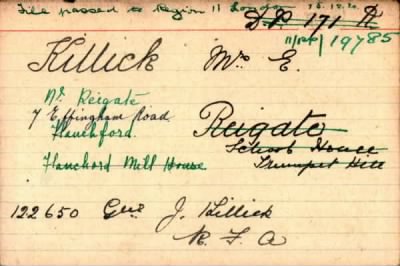 File passed to Region 11 London 15.12.20
D.P. 171 R
11/RP/19785
Killick Mrs E.
Nr Reigate
7 Effingham Road
Flanchford.
Reigate
School House
Trumpet Hill
Flanchord Mill House
122650 Gnr J. Killick
R. F. A